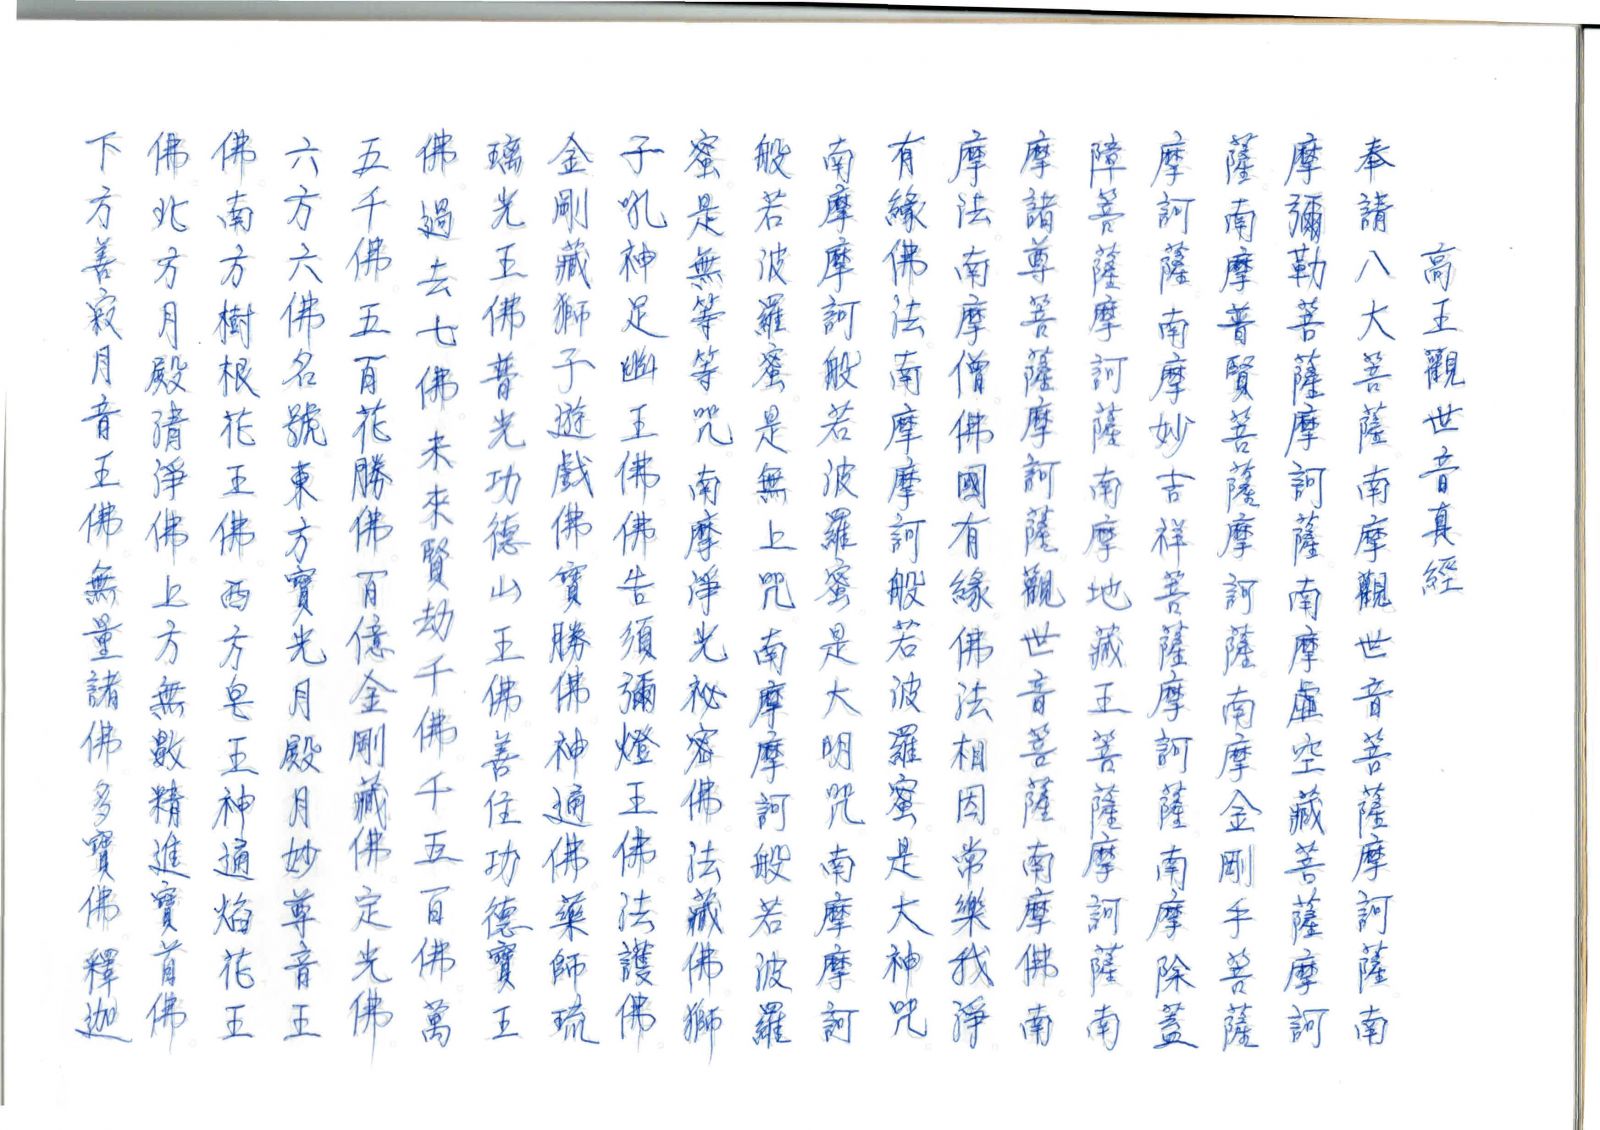 高王觀世音真經
奉請八大菩薩南摩觀世音菩薩摩訶薩南
摩彌勒菩薩摩訶薩南摩虛空藏菩薩摩訶
薩南摩普賢菩薩摩訶薩南摩金剛手菩薩
摩訶薩南摩妙吉祥菩薩摩訶薩南摩除蓋
障菩薩摩訶薩南摩地藏王菩薩摩訶薩南
摩諸尊菩薩摩訶薩觀世音菩薩南摩佛南
摩法南摩僧佛國有緣佛法相因常樂我淨
有緣佛法南摩摩訶般若波羅蜜是大神咒
南摩摩訶般若波羅蜜是大明咒南摩摩訶
般若波羅蜜是無上咒南摩摩訶般若波羅
蜜是無等等咒南摩淨光祕密佛法藏佛獅
子吼神足幽王佛佛告須彌燈王佛法護佛
金剛藏獅子遊戲佛寶勝佛神通佛藥師琉
璃光王佛普光功德山王佛善住功德寶王
佛過去七佛未來賢劫千佛千五百佛萬
五千佛五百花勝佛百億金剛藏佛定光佛
六方六佛名號東方寶光月殿月妙尊音王
佛南方樹根花王佛西方皂王神通焰花王
佛北方月殿清淨佛上方無數精進寶首佛
下方善寂月音王佛無量諸佛多寶佛釋迦